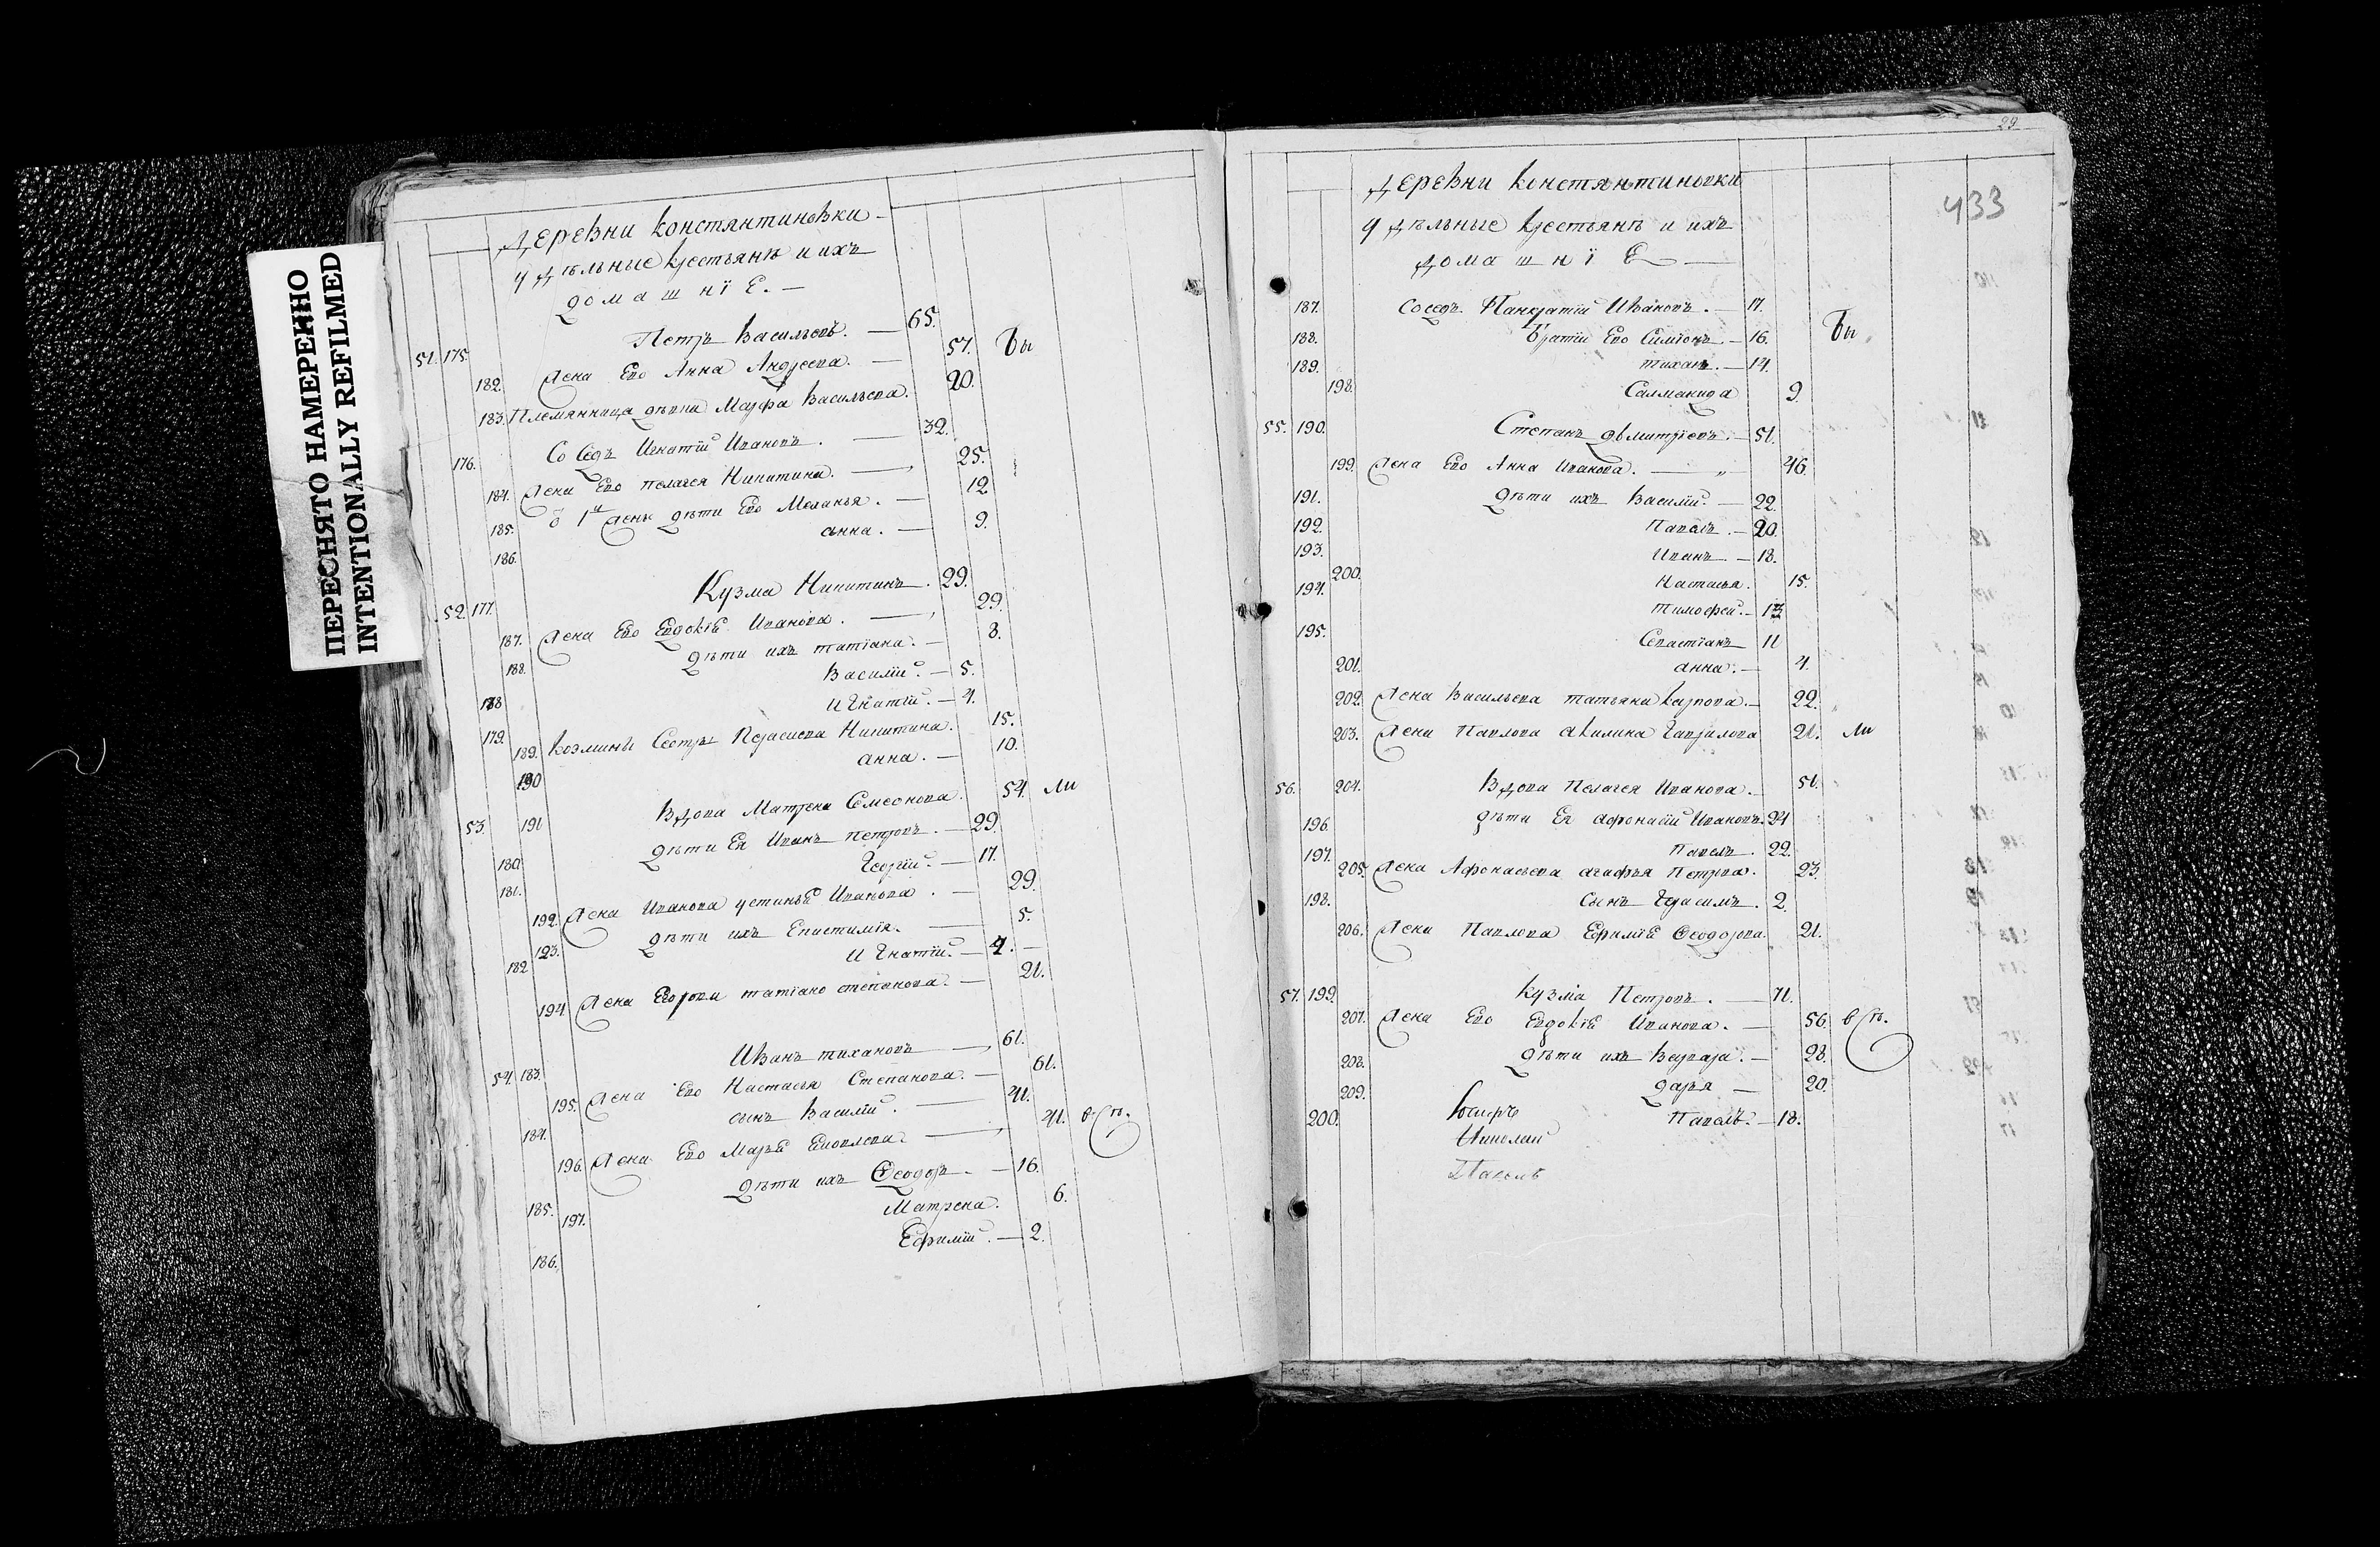 ПЕРЕСНЯТО НАМЕРЕННО
INTENTIONALLY REFILMED
Деревни Констянтиновки
удѣльные крестьянѣ и ихъ
домашнїе.
51. 175. Петръ Васильевъ. 65.
182. Жена Ево Анна Андреева. 57. бы
183. Племянница дѣвка Марфа Васильева. 20.
176. Соседъ Игнатїй Ивановъ. 32.
184. Жена Ево Пелагея Никитина. 25.
185. ѿ 1й жены дѣти Ево Меланья. 12
186. анна. 9.
52. 177. Кузма Никитинъ. 29.
187. Жена Ево Евдокїѣ Иванова. 29.
188. дѣти ихъ татїана. 8.
178 Василїй. 5.
179. Игнатїй. 4.
189. Козмины Сестры Прасковья Никитина. 15.
190 анна. 10.
53. 191 Вдова Матрена Семеонова. 54. ли
180. дѣти Ея Иванъ Петровъ. 29.
181. Георгїй. 17.
192. Жена Иванова устиньѣ Иванова. 29.
193. дѣти ихъ Епистимїя. 5.
182 Игнатїй. 4.
194 Жена Егорова татїано степанова. 21.
54. 183. Иванъ тихановъ 61.
195. Жена Ево Настасья Степанова. 61.
184. сынъ Василїй. 41.
196. Жена Ево Марьѣ 41. в п.
185. дѣти ихъ Ѳеодоръ. 16.
197. Матрена. 6.
186. Ефимїй. 2.
29.
433
Деревни Констянтиновки
удѣльные крестьянѣ и ихъ
домашнїЕ
187. соседъ Панкратїй Ивановъ. 17.
188. братїи Ево Симїонъ. 16. бы
189. тиханъ. 14.
198. Саломанида 9.
55. 190. Степанъ дьмитрїевъ. 51.
199. Жена Ево Анна Иванова. 46
191. дѣти ихъ Василїй. 22.
192. Павелъ. 20.
193. Иванъ. 18.
200. Настасья. 15.
194. Тимофей. 13
195. Севастїанъ 11
201. анна. 4.
202. Жена Васильева татьяна Карпова. 22.
203. Жена Павлова акилина Гаврилова 21. ли
56. 204. Вдова Пелагея Иванова. 51.
196. дѣти Ея афонасїй Ивановъ. 24
197. Павелъ. 22.
205. Жена Афонасьева агафья Петрова. 23.
198. Сынъ Герасимъ. 2.
206. Жена Павлова Ефимїѣ Ѳеодорова. 21.
57. 199. Кузма Петровъ. 71.
207. Жена Ево Евдокїѣ Иванова. 56. в п.
208. дѣти ихъ Варвара. 28.
209. дарья 20.
200. Павелъ. 18.
Iосифъ
Николай
Павелъ